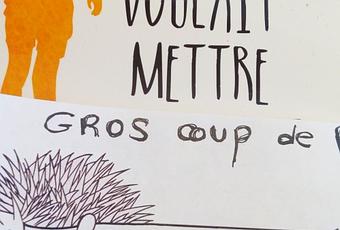 VOULAIT
METTRE
GROS coup de